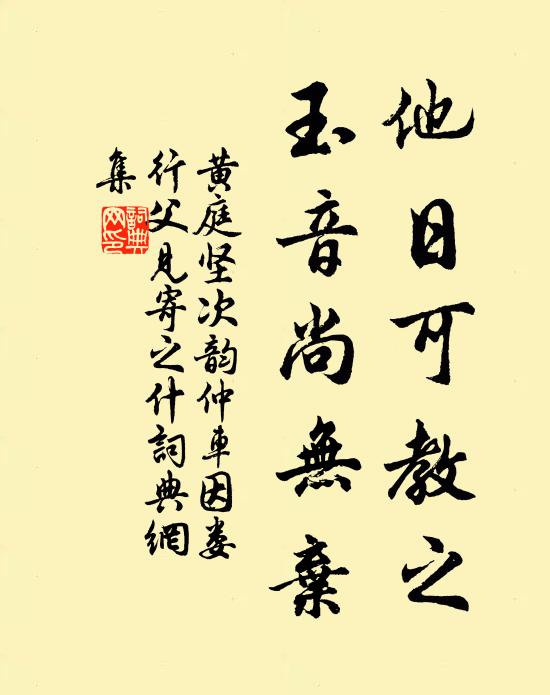 他日可教之
玉音尚無棄
黄庭坚次韵仲车因娄
行父见寄之什詞典網
集
詞典网印